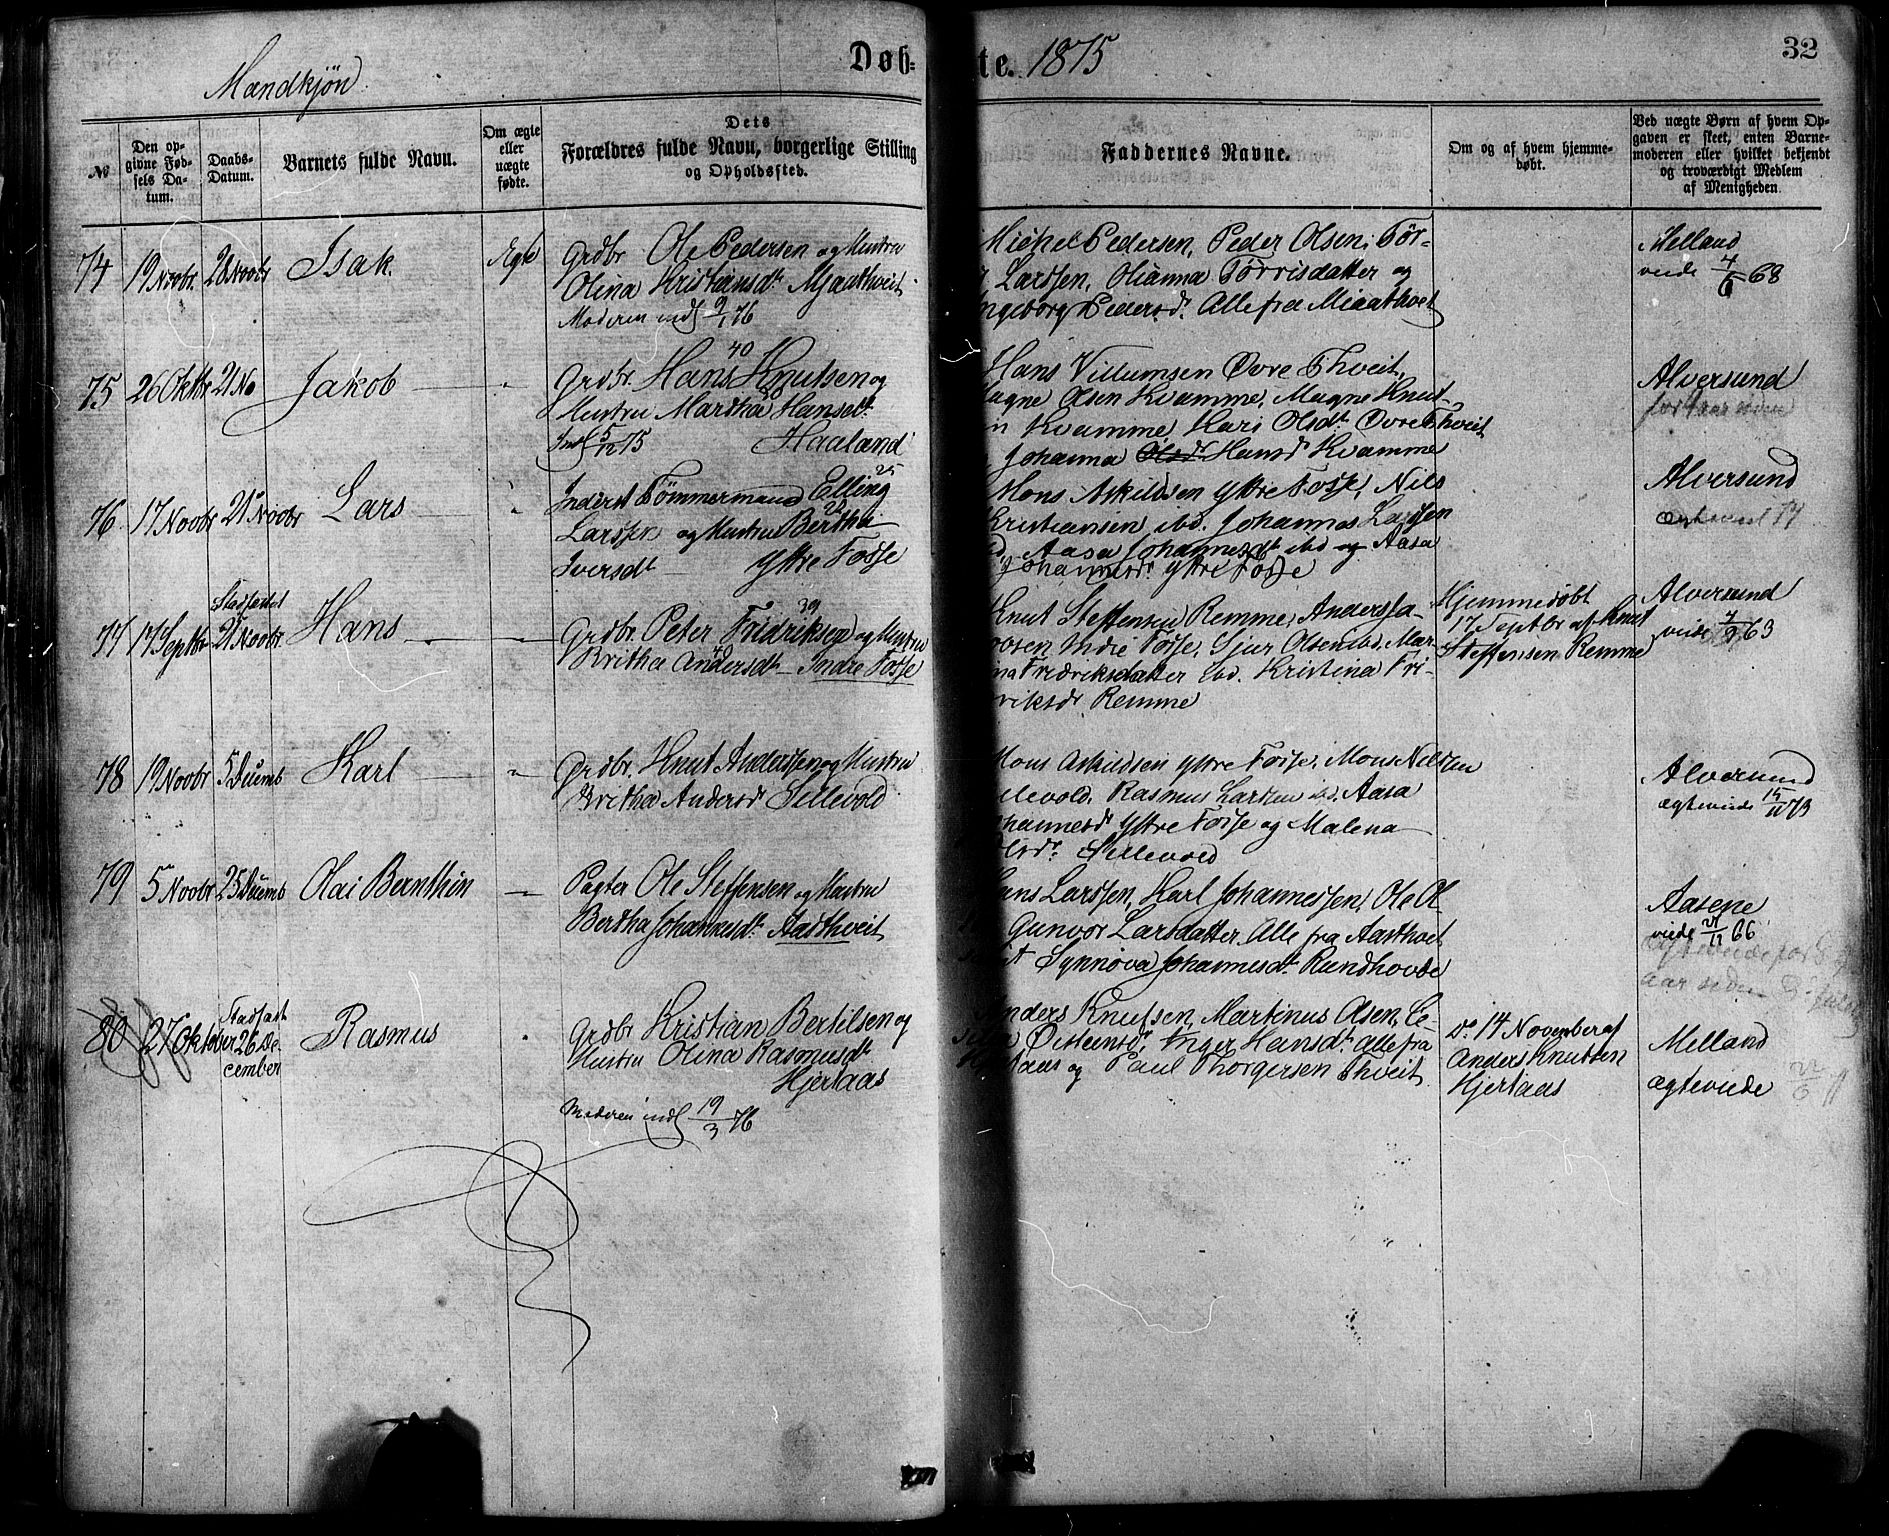 Mandkjøn
Døb-
te. 1875
32
№
Den op-
givne Fød-
sels Da-
tum.
Daabs-
Datum.
Barnets fulde Navn.
Om ægte
eller
uægte
fødte.
Dets
Forældres fulde Navn, borgerlige Stilling
og Opholdssted.
Faddernes Navne.
Om og af hvem hjemme-
døbt.
Ved uægte Børn af hvem Op-
gaven er skeet, enten Barne-
moderen eller hvilket bekjendt
og troværdigt Medlem
af Menigheden.
74 19 Novbr. 28 Novbr Isak. Egte
Grdbr Ole Pedersen og Hustru
Olina Kristiansdt Mjaathveit
Moderen indl 9/1 76
Michel Pedersen, Peder Olsen, Tør-
Larssen, Olianna Tørrisdatter og
Ingeborg Pedersd. Alle fra Miaathveit
Melland
viede 4/6 68
75 26 Oktbr 21 No Jakob "
40
Grdbr. Hans Knutsen og
Hustru Martha Hansdt
Indl 5/12 75 Haaland
Hans Villumsen Øvre Thveit,
Magne Olsen Kvamme, Magne Knut-
n Kvamme Kari Olsdt. Øvre Thveit
Johanna Olsd Hansd Kvamme
Alversund
76 17 Novbr 21 Novbr Lars "
Inderst Tømmermand Elling 25
Larssen og Hustru Bertha 22
Iversdt Yttre Fosse
Mons Askildsen Yttre Fosse, Nils
Kristiansen ibd. Johannes Larssen
Aasa Johannesdt ibd og Aasa
Johannesd. Yttre Fosse
Alversund
77 17 Septbr Stadfæstet
21 Novbr. Hans "
39
Grdbr. Peter Fridriksen og Hustru
40
Britha Andersdt Indre Fosse
Knut Steffensen Remme, Anders Ja-
Indre Fosse, Gjer Olsen ibd. Mar-
Fredriksdatter ibd. Kristina Fri-
riksd Remme
Hjemmedøbt
17 Septbr af Knut
Steffensen Remme
Alversund
viede 7/9 63
78 19 Novbr 5 Decemb Karl "
Grdbr. Knut Anderssen og Hustru
Britha Andersd Sellevold
Mons Askildsen Yttre Fosse. Mons Nilsen
ellevold. Rasmus Larsen ibd. Aasa
ohannesd Yttre Fosse og Malena
Olsd. Sellevold
Alversund
ægteviede 15/11 73
79 5 Novbr 25 Decemb Olai Bernthin
Pagter Ole Steffensen og Hustru
Bertha Johannesdt. Aasthveit
Hans Larssen, Karl Johannessen, Ole Ol-
Gunvor Larsdatter. Alle fra Aasthveit
Synnova Johannesdt. Rundhovde
Aasene
viede
80 27 Oktober Stadfæst
26 De-
cember Rasmus "
Grdbr Kristian Bertilsen og
Hustru Olina Rasmusdt
Hjertaas
Moderen indl 19/3 76
nders Knutsen, Martinus Olsen, Ce-
Øistensd. Inger Hansdt. alle fra
taas og Paul Thorgersen Thveit
Do 14 November af
Anders Knutsen
Hjertaas
Melland
ægteviede 22/6